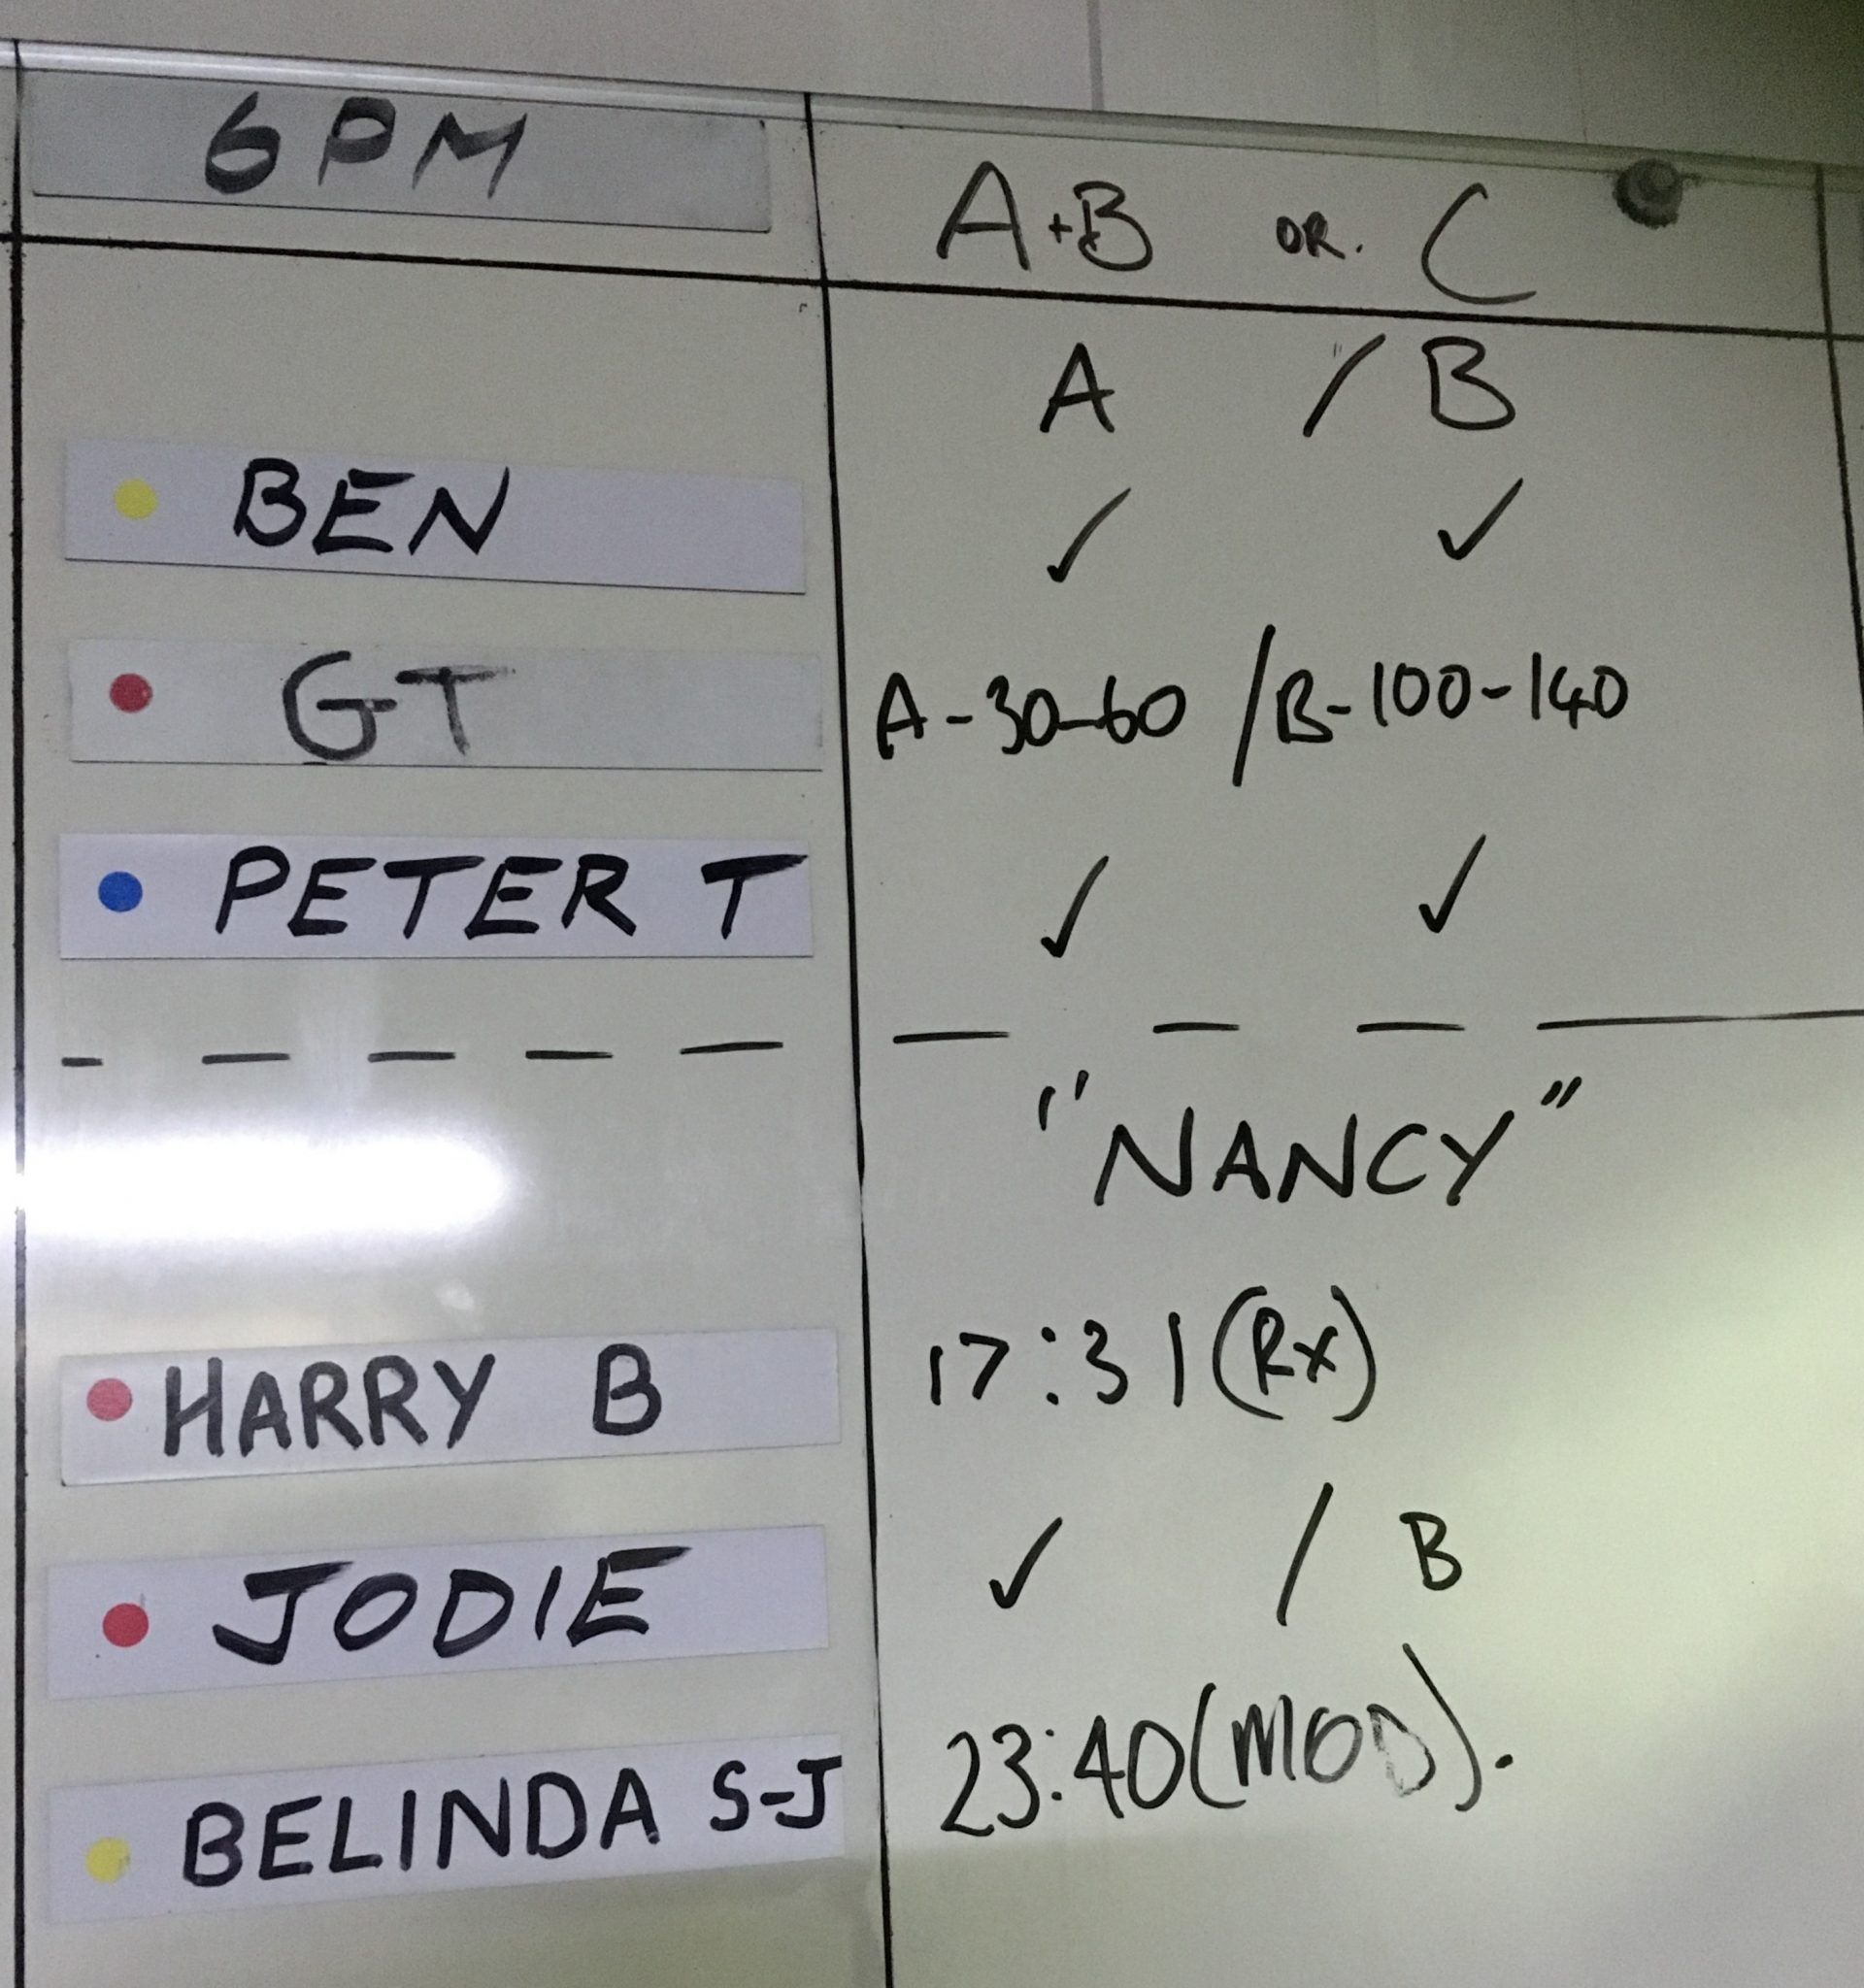 6PM A+B OR. C
A / B
BEN ✓ ✓
GT A-30-60 / B-100-140
PETER T ✓ ✓
"NANCY"
HARRY B 17:31 (Rx)
JODIE ✓ / B
BELINDA S-J 23:40 (MOD).